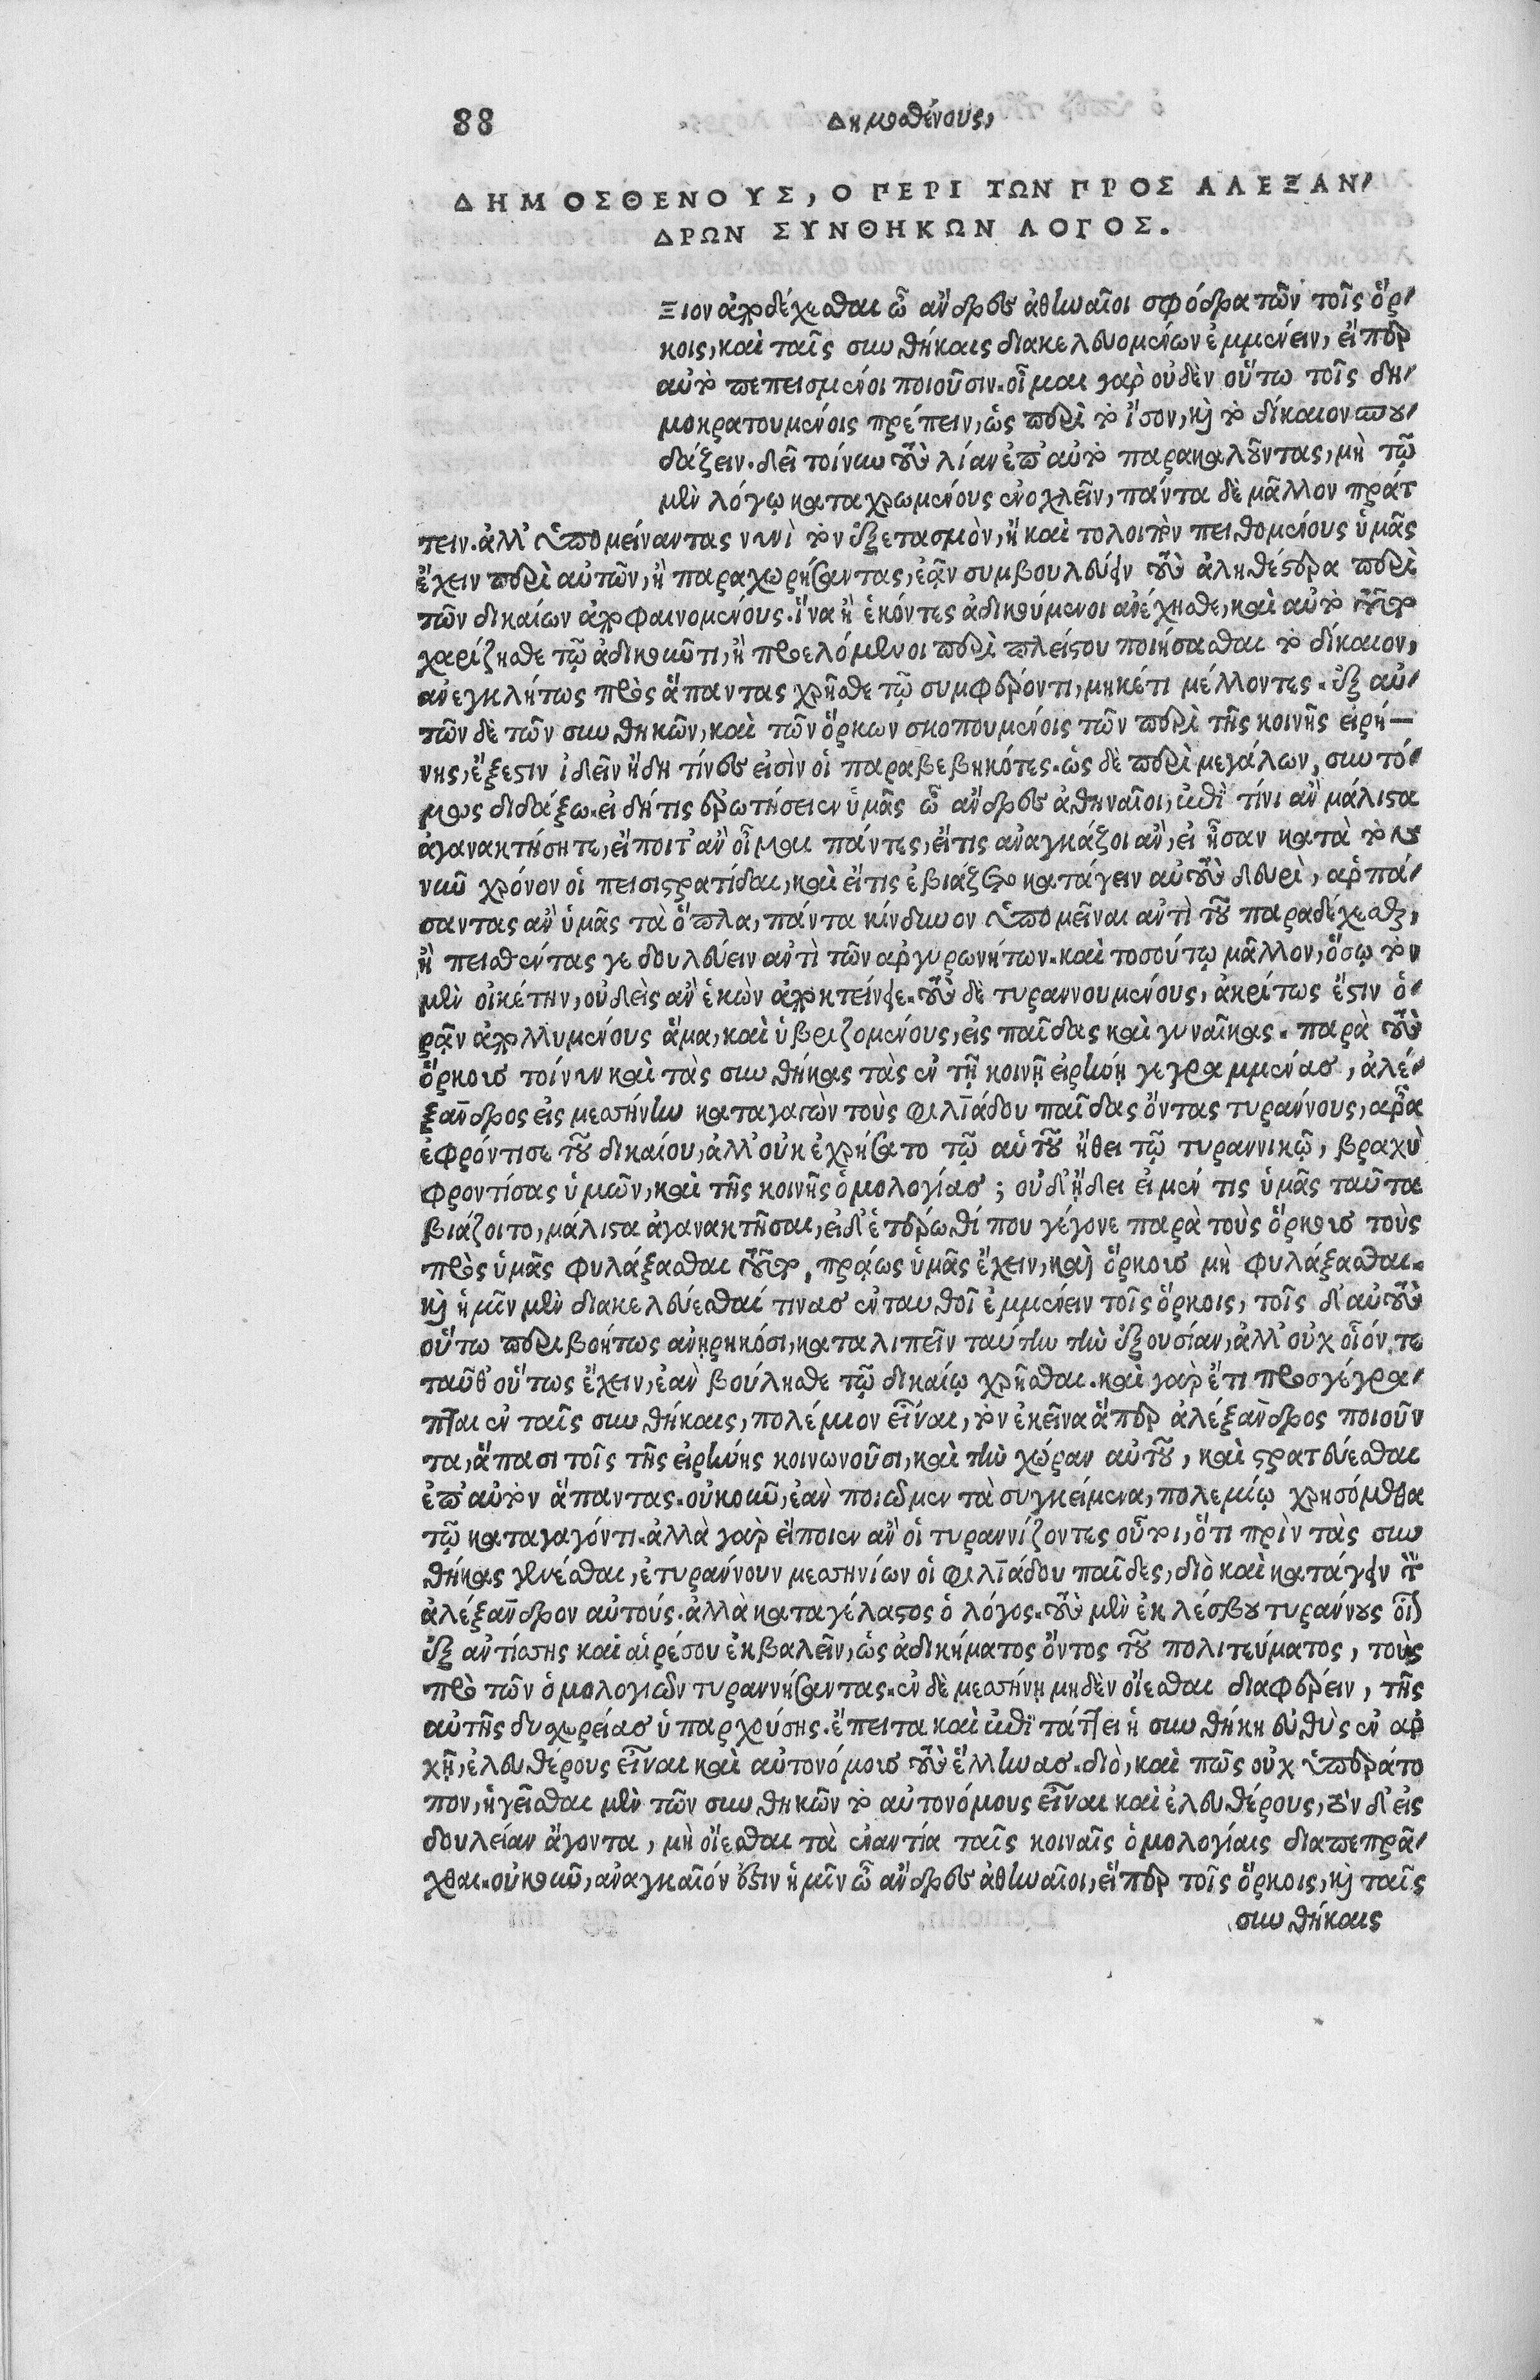 88 Δημοσθένους,
ΔΗΜΟΣΘΕΝΟΥΣ, Ο ΠΕΡΙ ΤΩΝ ΠΡΟΣ ΑΛΕΞΑΝ-
ΔΡΩΝ ΣΥΝΘΗΚΩΝ ΛΟΓΟΣ.
Ξιον ἀποδέχεσθαι ὦ ἄνδρες ἀθηναῖοι σφόδρα τῶν τοῖς ὅρ-
κοις, καὶ ταῖς συνθήκαις διακελευομένων ἐμμένειν, εἴπερ
αὐτὸ πεπεισμένοι ποιοῦσιν. οἶμαι γὰρ οὐδὲν οὕτω τοῖς δη-
μοκρατουμένοις πρέπειν, ὡς περὶ τὸ ἴσον, καὶ τὸ δίκαιον σπου-
δάζειν. δεῖ τοίνυν τοὺς λίαν ἐπ' αὐτὸ παρακαλοῦντας, μὴ τῷ
μὲν λόγῳ καταχρωμένους ἐνοχλεῖν, πάντα δὲ μᾶλλον πράτ
τειν. ἀλλ' ὑπομείναντας νυνὶ τὸν ἐξετασμὸν, ἢ καὶ τολοιπὸν πειθομένους ὑμᾶς
ἔχειν περὶ αὐτῶν, ἢ παραχωρήσαντας, ἐᾷν συμβουλεύειν τοὺς ἀληθέστερα περὶ
τῶν δικαίων ἀποφαινομένους. ἵνα ἢ ἑκόντες ἀδικούμενοι ἀνέχησθε, καὶ αὐτὸ τοῦτο
χαρίζησθε τῷ ἀδικοῦντι, ἢ προελόμενοι περὶ πλείστου ποιήσασθαι τὸ δίκαιον,
ἀνεγκλήτως πρὸς ἅπαντας χρῆσθε τῷ συμφέροντι, μηκέτι μέλλοντες. ἐξ αὐ-
τῶν δὲ τῶν συνθηκῶν, καὶ τῶν ὅρκων σκοπουμένοις τῶν περὶ τῆς κοινῆς εἰρή-
νης, ἔξεστιν ἰδεῖν ἤδη τίνες εἰσὶν οἱ παραβεβηκότες. ὡς δὲ περὶ μεγάλων, συντό-
μως διδάξω. εἰ δή τις ἐρωτήσειεν ὑμᾶς ὦ ἄνδρες ἀθηναῖοι, ἐπὶ τίνι ἂν μάλιστα
ἀγανακτήσητε, εἴποιτ' ἂν οἶμαι πάντες, εἴ τις ἀναγκάζοι ἂν, εἰ ἦσαν κατὰ τὸν
νῦν χρόνον οἱ πεισιστρατίδαι, καὶ εἴ τις ἐβιάζετο κατάγειν αὐτοὺς δευρὶ, ἁρπά-
σαντας ἂν ὑμᾶς τὰ ὅπλα, πάντα κίνδυνον ὑπομεῖναι ἀντὶ τοῦ παραδέχεσθαι,
ἢ πεισθέντας γε δουλεύειν ἀντὶ τῶν ἀργυρωνήτων. καὶ τοσούτῳ μᾶλλον, ὅσῳ τὸν
μὲν οἰκέτην, οὐδεὶς ἂν ἑκὼν ἀποκτείνειε. τοὺς δὲ τυραννουμένους, ἀκρίτως ἔστιν ὁ-
ρᾷν ἀπολλυμένους ἅμα, καὶ ὑβριζομένους, εἰς παῖδας καὶ γυναῖκας. παρὰ τοὺς
ὅρκους τοίνυν καὶ τὰς συνθήκας τὰς ἐν τῇ κοινῇ εἰρήνῃ γεγραμμένας, ἀλέ-
ξανδρος εἰς μεσήνην καταγαγὼν τοὺς φιλιάδου παῖδας ὄντας τυράννους, ἆρα
ἐφρόντισε τοῦ δικαίου, ἀλλ' οὐκ ἐχρήσατο τῷ αὑτοῦ ἤθει τῷ τυραννικῷ, βραχὺ
φροντίσας ὑμῶν, καὶ τῆς κοινῆς ὁμολογίας; οὐδ' ᾔδει εἰ μέν τις ὑμᾶς ταῦτα
βιάζοιτο, μάλιστα ἀγανακτῆσαι, εἰ δ' ἑτέρωθί που γέγονε παρὰ τοὺς ὅρκους τοὺς
πρὸς ὑμᾶς φυλάξασθαι τοῦτο, πράως ὑμᾶς ἔχειν, καὶ ὅρκους μὴ φυλάξασθαι.
καὶ ἡμῖν μὲν διακελεύεσθαί τινας ἐνταυθοῖ ἐμμένειν τοῖς ὅρκοις, τοῖς δ' αὐτοὺς
οὕτω περιβοήτως ἀνῃρηκόσι, καταλιπεῖν ταύτην τὴν ἐξουσίαν, ἀλλ' οὐχ οἷόν, τε
ταῦθ' οὕτως ἔχειν, ἐὰν βούλησθε τῷ δικαίῳ χρῆσθαι. καὶ γὰρ ἔτι προσγέγρα-
πται ἐν ταῖς συνθήκαις, πολέμιον εἶναι, τὸν ἐκεῖνα ἅπερ ἀλέξανδρος ποιοῦν
τα, ἅπασι τοῖς τῆς εἰρήνης κοινωνοῦσι, καὶ τὴν χώραν αὐτοῦ, καὶ στρατεύεσθαι
ἐπ' αὐτὸν ἅπαντας. οὐκοῦν, ἐὰν ποιῶμεν τὰ συγκείμενα, πολεμίῳ χρησόμεθα
τῷ καταγαγόντι. ἀλλὰ γὰρ εἴποιεν ἂν οἱ τυραννίζοντες οὗτοι, ὅτι πρὶν τὰς συν
θήκας γενέσθαι, ἐτυράννουν μεσσηνίων οἱ φιλιάδου παῖδες, διὸ καὶ κατάγειν τὸν
ἀλέξανδρον αὐτούς. ἀλλὰ καταγέλαστος ὁ λόγος. τοὺς μὲν ἐκ λέσβου τυράννους οἷον
ἐξ ἀντίσσης καὶ αἱρέσου ἐκβαλεῖν, ὡς ἀδικήματος ὄντος τοῦ πολιτεύματος, τοὺς
πρὸ τῶν ὁμολογιῶν τυραννήσαντας. ἐν δὲ μεσσήνῃ μηδὲν οἴεσθαι διαφέρειν, τῆς
αὐτῆς δυσχωρείας ὑπαρχούσης. ἔπειτα καὶ ἐπιτάττει ἡ συνθήκη εὐθὺς ἐν ἀρ
χῇ, ἐλευθέρους εἶναι καὶ αὐτονόμους τοὺς ἕλληνας. διὸ, καὶ πῶς οὐχ ὑπεράτο
πον, ἡγεῖσθαι μὲν τῶν συνθηκῶν τὸ αὐτονόμους εἶναι καὶ ἐλευθέρους, τὸν δ' εἰς
δουλείαν ἄγοντα, μὴ οἴεσθαι τὰ ἐναντία ταῖς κοιναῖς ὁμολογίαις διαπεπρᾶ-
χθαι. οὐκοῦν, ἀναγκαῖόν ἐστιν ἡμῖν ὦ ἄνδρες ἀθηναῖοι, εἴπερ τοῖς ὅρκοις, καὶ ταῖς
συνθήκαις